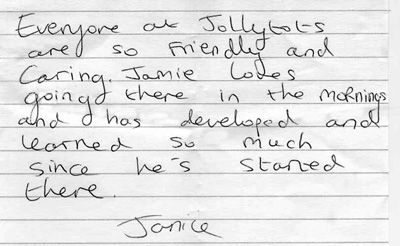 Everyone at Jollytots
are so friendly and
Caring. Jamie loves
going there in the mornings
and has developed and
learned so much
since he's started
there.
Janice